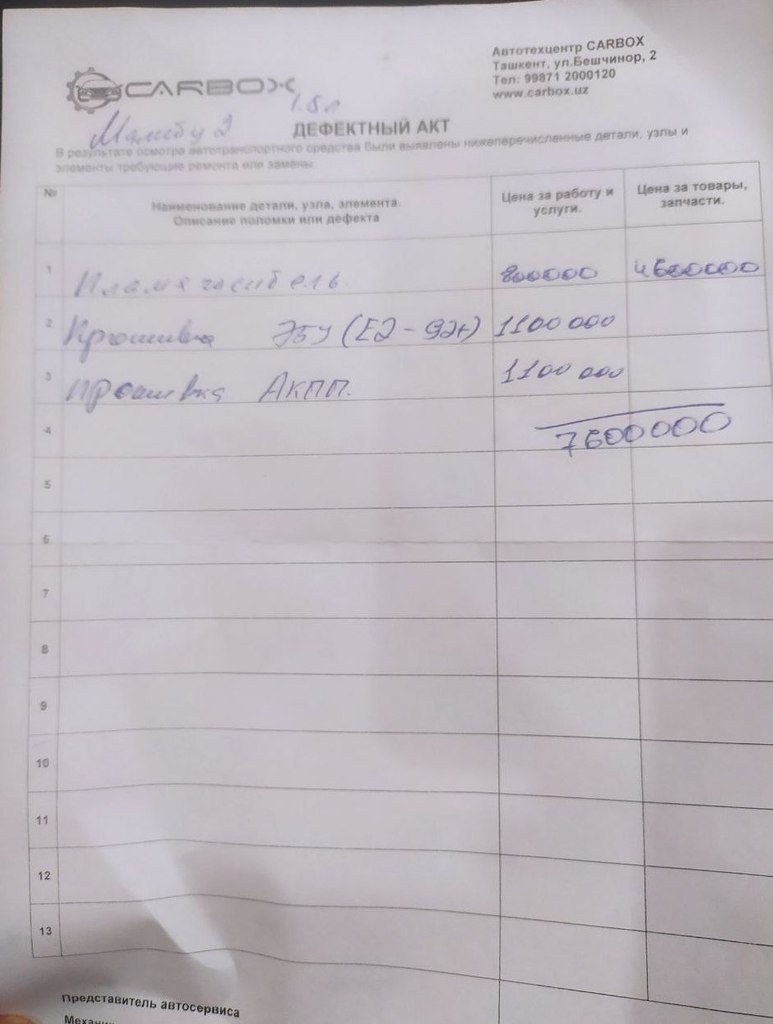 CARBOX
Автотехцентр CARBOX
Ташкент, ул.Бешчинор, 2
Тел: 99871 2000120
www.carbox.uz
Малибу 2 1.5л
ДЕФЕКТНЫЙ АКТ
В результате осмотра автотранспортного средства были выявлены нижеперечисленные детали, узлы и
элементы требующие ремонта или замены:
№ Наименование детали, узла, элемента. Цена за работу и Цена за товары,
Описание поломки или дефекта услуги. запчасти.
1 Пламягаситель 800000 4600000
2 Прошивка ЭБУ (E2-92н) 1100 000
3 Прошивка АКПП. 1100 000
4 7600000
5
6
7
8
9
10
11
12
13
Представитель автосервиса